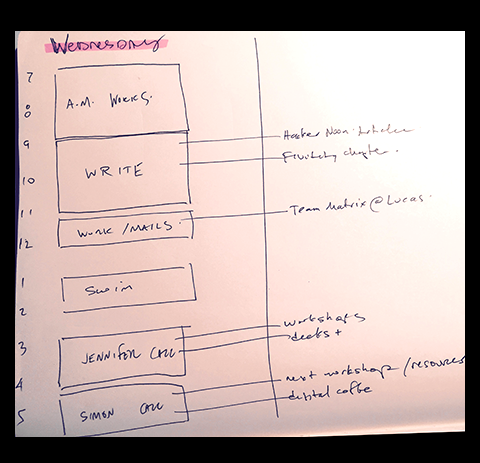 Wednesday
7
A.M. WORKS.
8
9
Hacker Noon
WRITE
chapter.
10
11
Team Matrix @ Lucas.
WORK / MAILS.
12
1
Swim
2
workshops
3
decks +
JENNIFER CALL
4
next workshop / resources
digital coffee
SIMON CALL
5